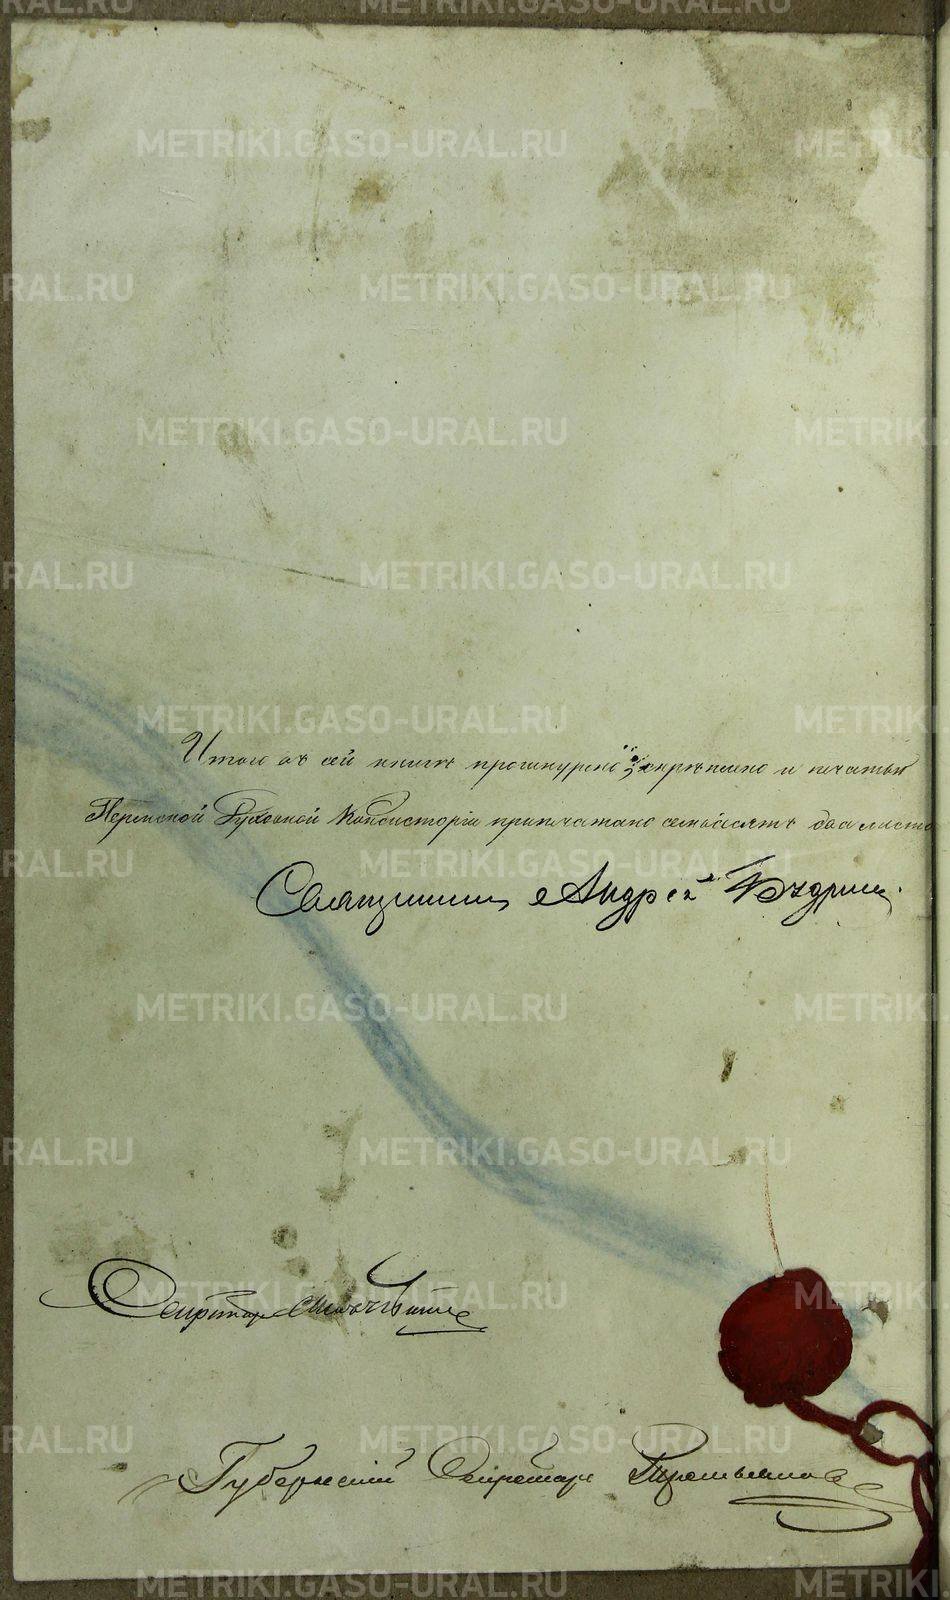 Итого въ сей книгѣ прошнуровано, скрѣплено и печатью
Пермской Духовной Консисторіи припечатано семьдесятъ два листа
Священникъ Андрей Бздрин
Секретарь
Губернскій Секретарь Третьяковъ
METRIKI.GASO-URAL.RU